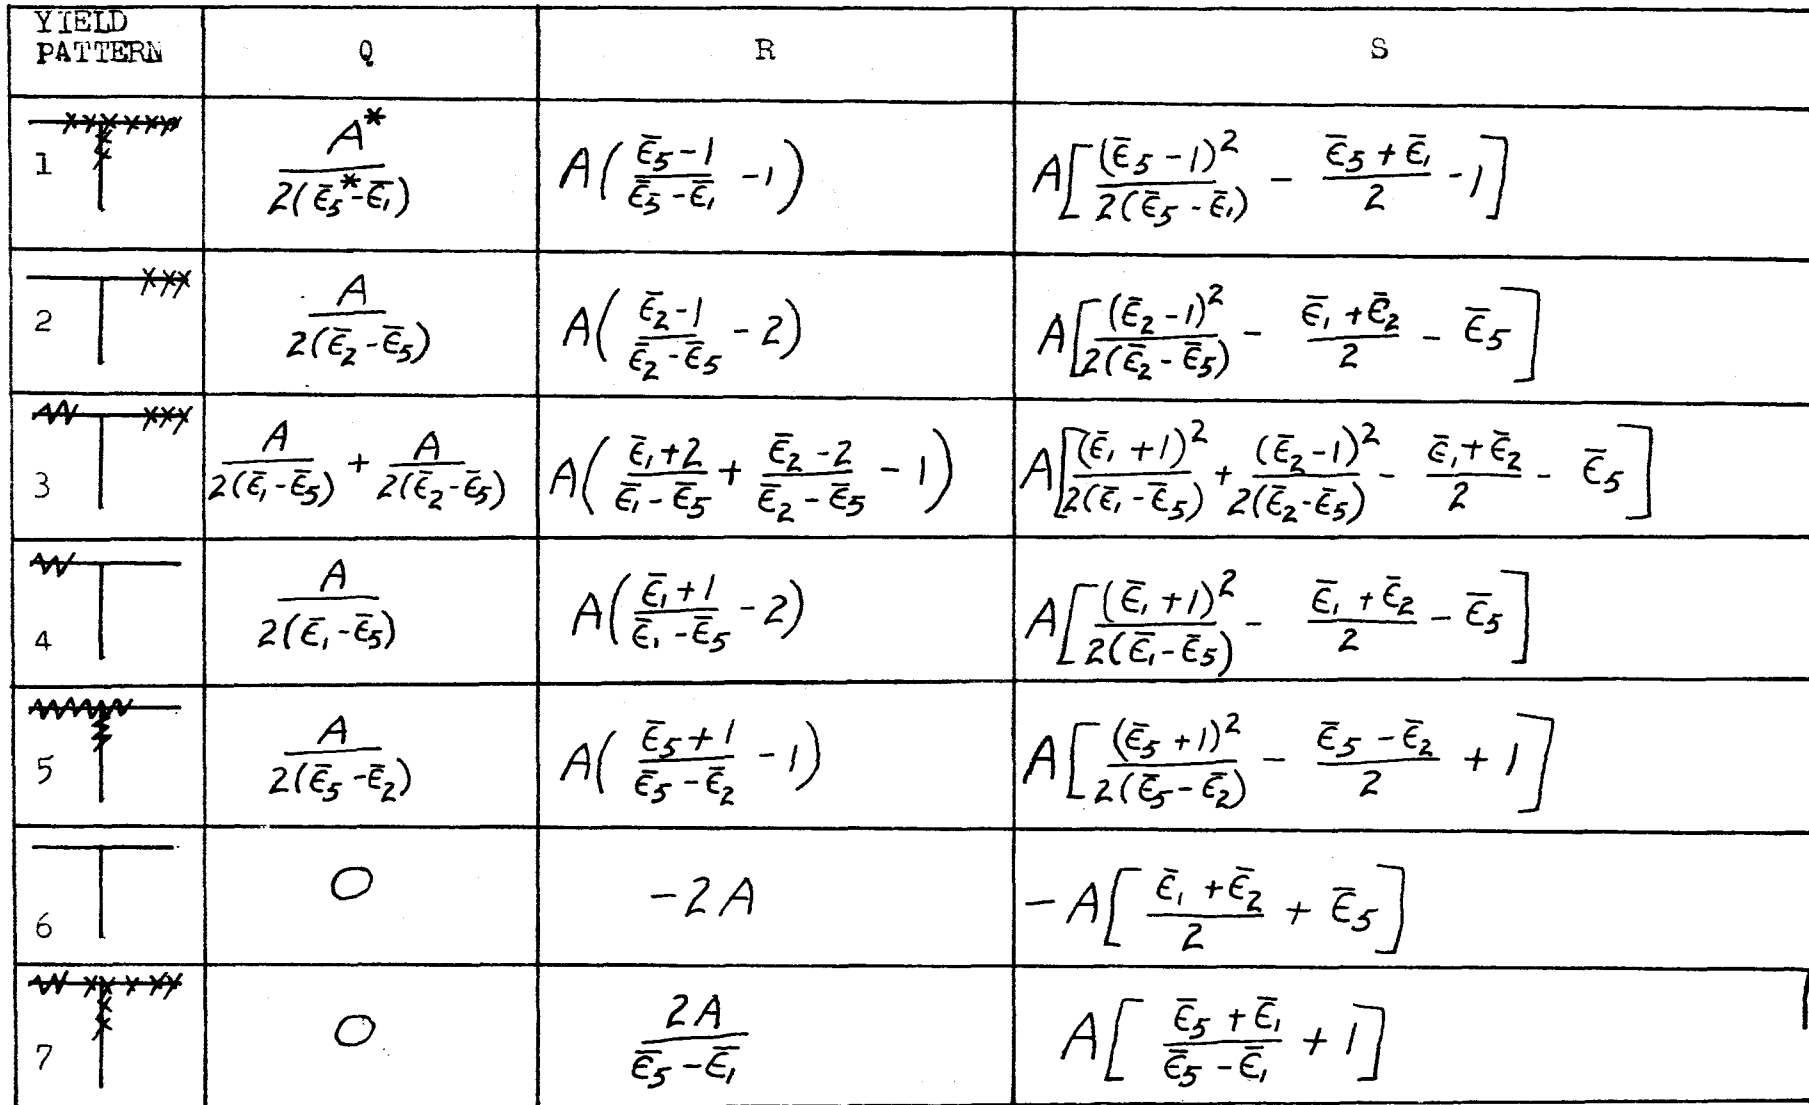 YIELD PATTERN | Q | R | S
1 | $\frac{A^*}{2(\bar{\epsilon}_5^* - \bar{\epsilon}_1)}$ | $A\left(\frac{\bar{\epsilon}_5 - 1}{\bar{\epsilon}_5 - \bar{\epsilon}_1} - 1\right)$ | $A\left[\frac{(\bar{\epsilon}_5 - 1)^2}{2(\bar{\epsilon}_5 - \bar{\epsilon}_1)} - \frac{\bar{\epsilon}_5 + \bar{\epsilon}_1}{2} - 1\right]$
2 | $\frac{A}{2(\bar{\epsilon}_2 - \bar{\epsilon}_5)}$ | $A\left(\frac{\bar{\epsilon}_2 - 1}{\bar{\epsilon}_2 - \bar{\epsilon}_5} - 2\right)$ | $A\left[\frac{(\bar{\epsilon}_2 - 1)^2}{2(\bar{\epsilon}_2 - \bar{\epsilon}_5)} - \frac{\bar{\epsilon}_1 + \bar{\epsilon}_2}{2} - \bar{\epsilon}_5\right]$
3 | $\frac{A}{2(\bar{\epsilon}_1 - \bar{\epsilon}_5)} + \frac{A}{2(\bar{\epsilon}_2 - \bar{\epsilon}_5)}$ | $A\left(\frac{\bar{\epsilon}_1 + 2}{\bar{\epsilon}_1 - \bar{\epsilon}_5} + \frac{\bar{\epsilon}_2 - 2}{\bar{\epsilon}_2 - \bar{\epsilon}_5} - 1\right)$ | $A\left[\frac{(\bar{\epsilon}_1 + 1)^2}{2(\bar{\epsilon}_1 - \bar{\epsilon}_5)} + \frac{(\bar{\epsilon}_2 - 1)^2}{2(\bar{\epsilon}_2 - \bar{\epsilon}_5)} - \frac{\bar{\epsilon}_1 + \bar{\epsilon}_2}{2} - \bar{\epsilon}_5\right]$
4 | $\frac{A}{2(\bar{\epsilon}_1 - \bar{\epsilon}_5)}$ | $A\left(\frac{\bar{\epsilon}_1 + 1}{\bar{\epsilon}_1 - \bar{\epsilon}_5} - 2\right)$ | $A\left[\frac{(\bar{\epsilon}_1 + 1)^2}{2(\bar{\epsilon}_1 - \bar{\epsilon}_5)} - \frac{\bar{\epsilon}_1 + \bar{\epsilon}_2}{2} - \bar{\epsilon}_5\right]$
5 | $\frac{A}{2(\bar{\epsilon}_5 - \bar{\epsilon}_2)}$ | $A\left(\frac{\bar{\epsilon}_5 + 1}{\bar{\epsilon}_5 - \bar{\epsilon}_2} - 1\right)$ | $A\left[\frac{(\bar{\epsilon}_5 + 1)^2}{2(\bar{\epsilon}_5 - \bar{\epsilon}_2)} - \frac{\bar{\epsilon}_5 - \bar{\epsilon}_2}{2} + 1\right]$
6 | 0 | $-2A$ | $-A\left[\frac{\bar{\epsilon}_1 + \bar{\epsilon}_2}{2} + \bar{\epsilon}_5\right]$
7 | 0 | $\frac{2A}{\bar{\epsilon}_5 - \bar{\epsilon}_1}$ | $A\left[\frac{\bar{\epsilon}_5 + \bar{\epsilon}_1}{\bar{\epsilon}_5 - \bar{\epsilon}_1} + 1\right]$